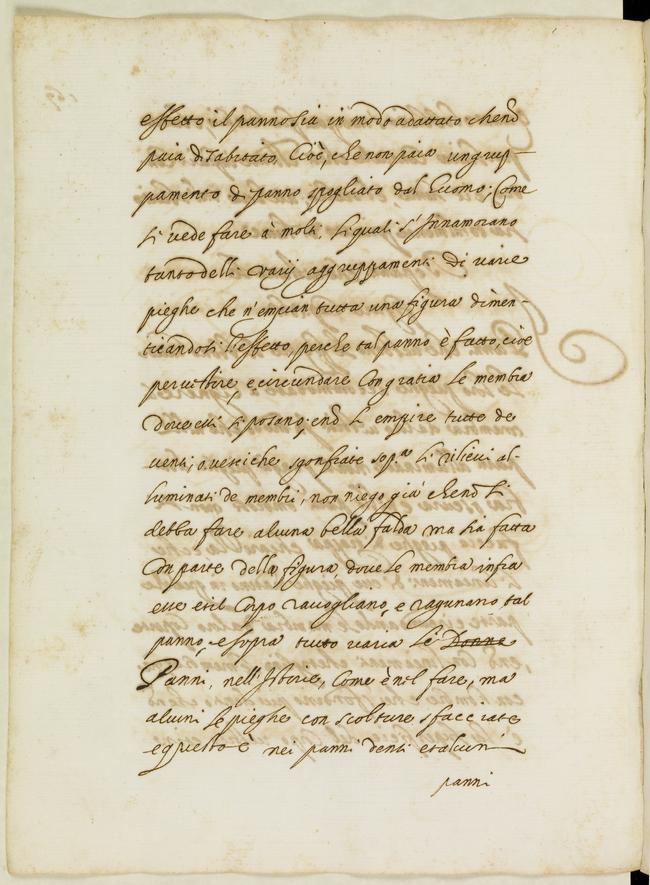 effetto il panno sia in modo adattato che nō
paia disabitato, Cioè, che non paia un grup-
pamento di panno spogliato dal huomo; Come
si vede fare à molti, li quali s'Innamorano
tanto delli varij aggruppamenti di varie
pieghe che n'empian tutta una figura dimen-
ticandosi l'effetto, perche tal panno è fatto, cioè
per vestire, e circundare Con gratia le membra
dove essi si posano; e nō l'empire tutte de
venti, o vesciche sgonfiate sop.ᵃ li rilievi al-
luminati de membri, non niego già che nō si
debba fare alcuna bella falda ma sia fatta
Con parte della figura, dove le membra infra
esse et il Corpo racogliano, e ragunano, tal
panno, e sopra tutto varia le Donne
Panni, nell'Istorie, Come è nel fare, ma
alcuni le pieghe con scolture sfacciate
e questo è nei panni denti et alcuni
panni